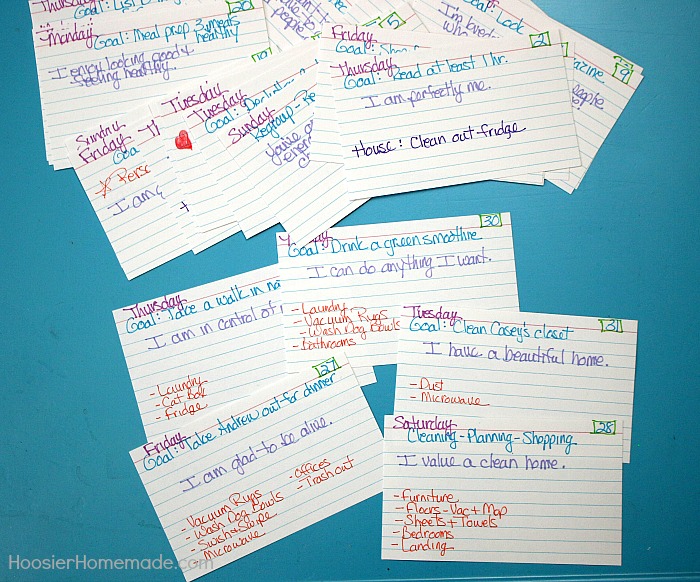 Thursday
30
Monday
Goal: Meal prep 3 meals
healthy
I enjoy looking good &
feeling healthy.
Friday
5
Goal:
Goal: Look
I'm loved
9
people
Thursday
21
Goal: Read at least 1 hr.
I am perfectly me.
House: Clean out fridge
Sunday
Friday
Goa
* Perso
I am
Tuesday
Tuesday
Sunday
Regroup - Re
30
Goal: Drink a green smoothie
I can do anything I want.
- Laundry
- Vacuum Rugs
- Wash Dog Bowls
- Bathrooms
Thursday
Goal: Take a walk in na
I am in control of
- Laundry
- Cat Box
- Fridge
Tuesday
31
Goal: Clean Casey's closet
I have a beautiful home.
- Dust
- Microwave
Friday
27
Goal: Take Andrew out for dinner
I am glad to be alive.
- Vacuum Rugs
- Wash Dog Bowls
- Swish & Swipe
- Microwave
- Offices
- Trash out
Saturday
28
Cleaning - Planning - Shopping
I value a clean home.
- Furniture
- Floors - Vac + Mop
- Sheets + Towels
- Bedrooms
- Landing
HoosierHomemade.com